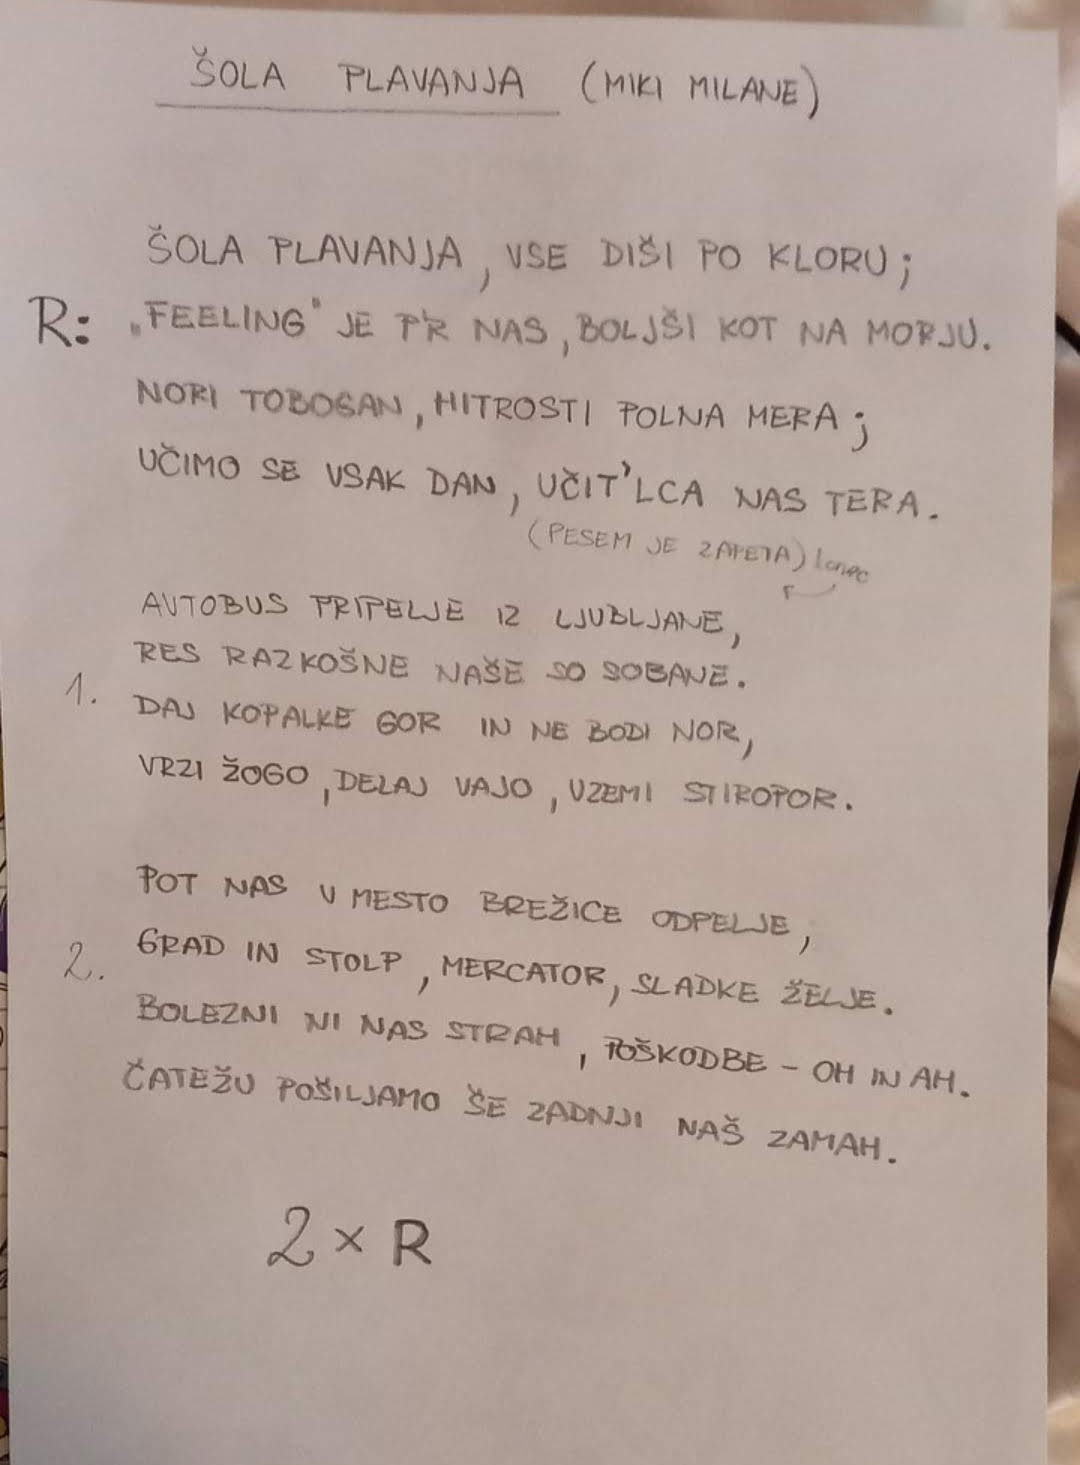 ŠOLA PLAVANJA (MIKI MILANE)
ŠOLA PLAVANJA, VSE DIŠI PO KLORU;
R: „FEELING" JE P'R NAS, BOLJŠI KOT NA MORJU.
NORI TOBOGAN, HITROSTI POLNA MERA;
UČIMO SE VSAK DAN, UČIT'LCA NAS TERA.
(PESEM JE ZAPETA) konec
AVTOBUS PRIPELJE IZ LJUBLJANE,
RES RAZKOŠNE NAŠE SO SOBANE.
1. DAJ KOPALKE GOR IN NE BODI NOR,
VRZI ŽOGO, DELAJ VAJO, VZEMI STIROPOR.
POT NAS V MESTO BREŽICE ODPELJE,
2. GRAD IN STOLP, MERCATOR, SLADKE ŽELJE.
BOLEZNI NI NAS STRAH, POŠKODBE - OH IN AH.
ČATEŽU POŠILJAMO ŠE ZADNJI NAŠ ZAMAH.
2 × R